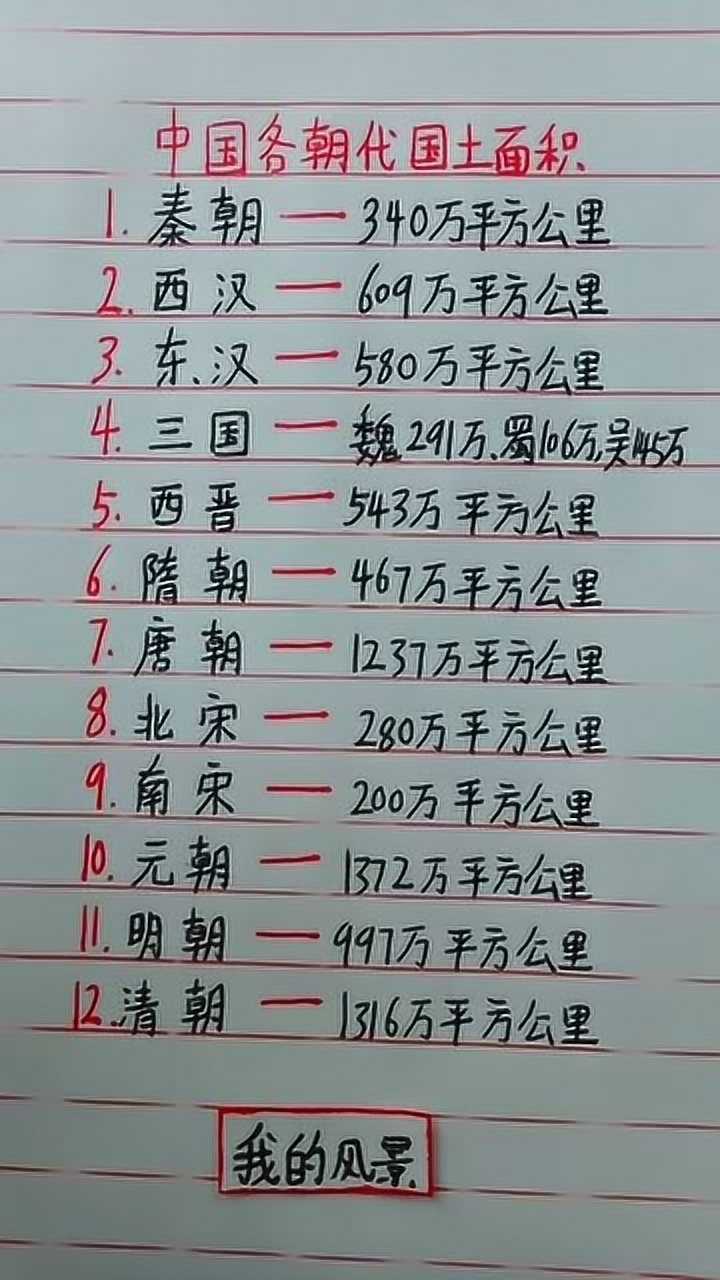 中国各朝代国土面积
1. 秦朝 — 340万平方公里
2. 西汉 — 609万平方公里
3. 东汉 — 580万平方公里
4. 三国 — 魏291万、蜀106万,吴145万
5. 西晋 — 543万平方公里
6. 隋朝 — 467万平方公里
7. 唐朝 — 1237万平方公里
8. 北宋 — 280万平方公里
9. 南宋 — 200万平方公里
10. 元朝 — 1372万平方公里
11. 明朝 — 997万平方公里
12. 清朝 — 1316万平方公里
我的风景